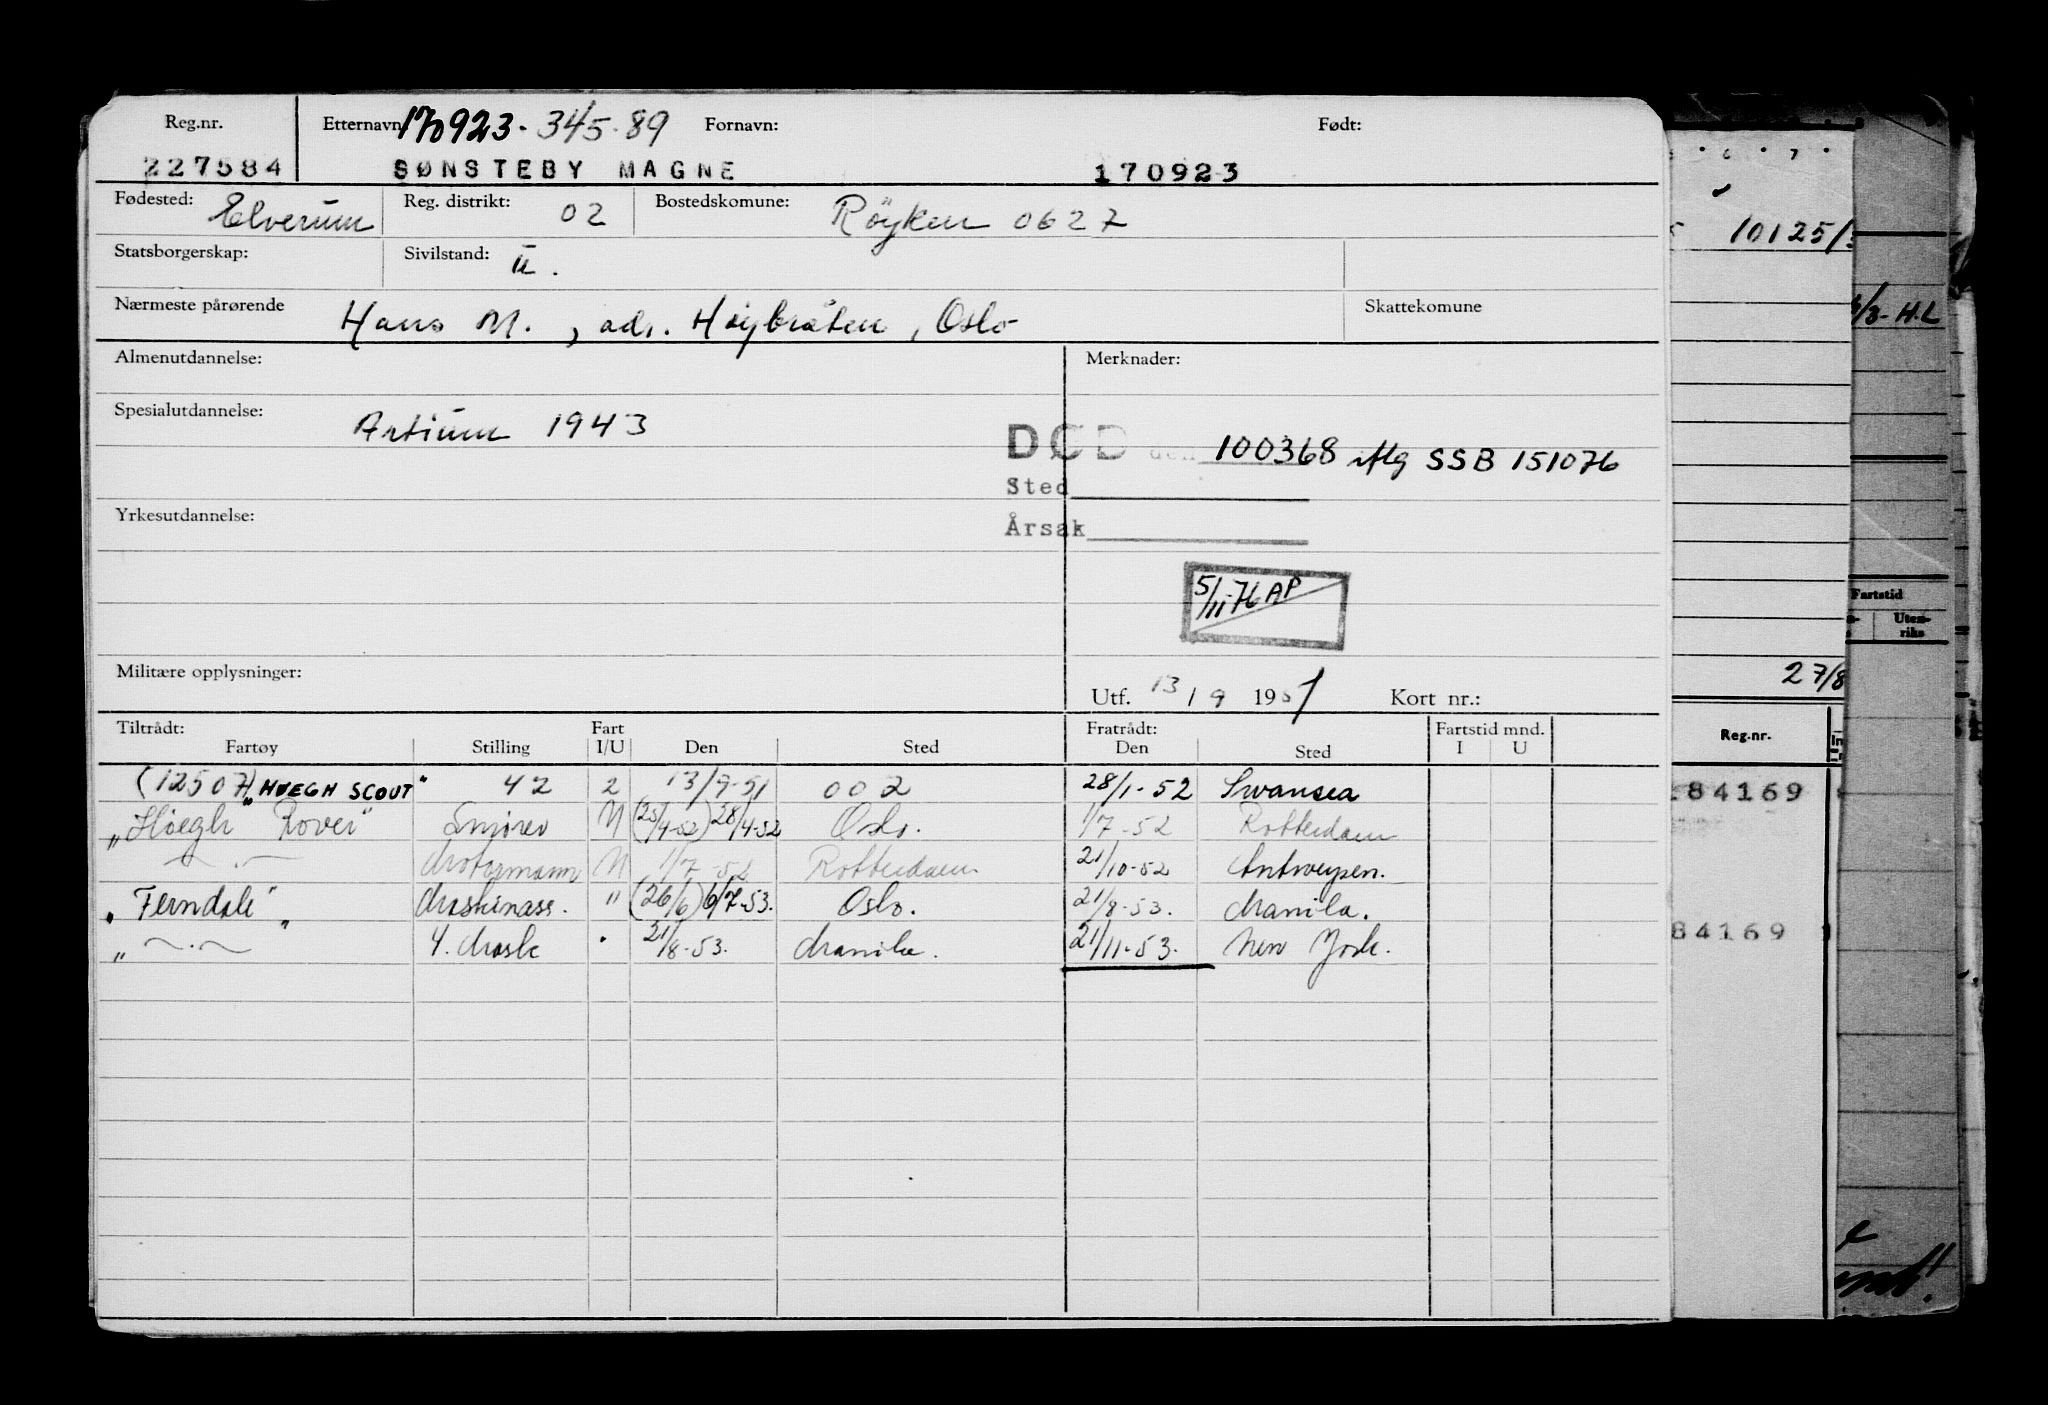 Reg.nr. Etternavn 170923. 345.89 Fornavn: Født:
227584 SØNSTEBY MAGNE 170923
Fødested: Elverum Reg. distrikt: 02 Bostedskomune: Röyken 0627
Statsborgerskap: Sivilstand: U.
Nærmeste pårørende Hans M., adr. Høybråten, Oslo Skattekomune
Almenutdannelse: Merknader:
Spesialutdannelse: Artium 1943
DØD den 100368 iflg SSB 151076
Sted
Årsak
Yrkesutdannelse:
5/11-76 AP
Militære opplysninger:
Utf. 13/9 1951 Kort nr.:
Tiltrådt: Fart Fratrådt: Fartstid mnd.
Fartøy Stilling I/U Den Sted Den Sted I U
(12507) "HØEGH SCOUT" 42 2 13/9-51 002 28/1-52 Swansea
"Høegh Rover" Smører N (25/4-52) 28/4-52 Oslo. 1/7-52 Rotterdam
" — Motormann N 1/7-52 Rotterdam 21/10-52 Antwerpen.
"Ferndale" Maskinass. " (26/6) 6/7-53. Oslo. 21/8-53. Manila.
" — " 4. Mask " 21/8-53. Manila. 21/11-53. New York.
6 7
10125/
/3-H.L
Fartstid
Uten-
riks
27/8
Reg.nr.
84169
84169